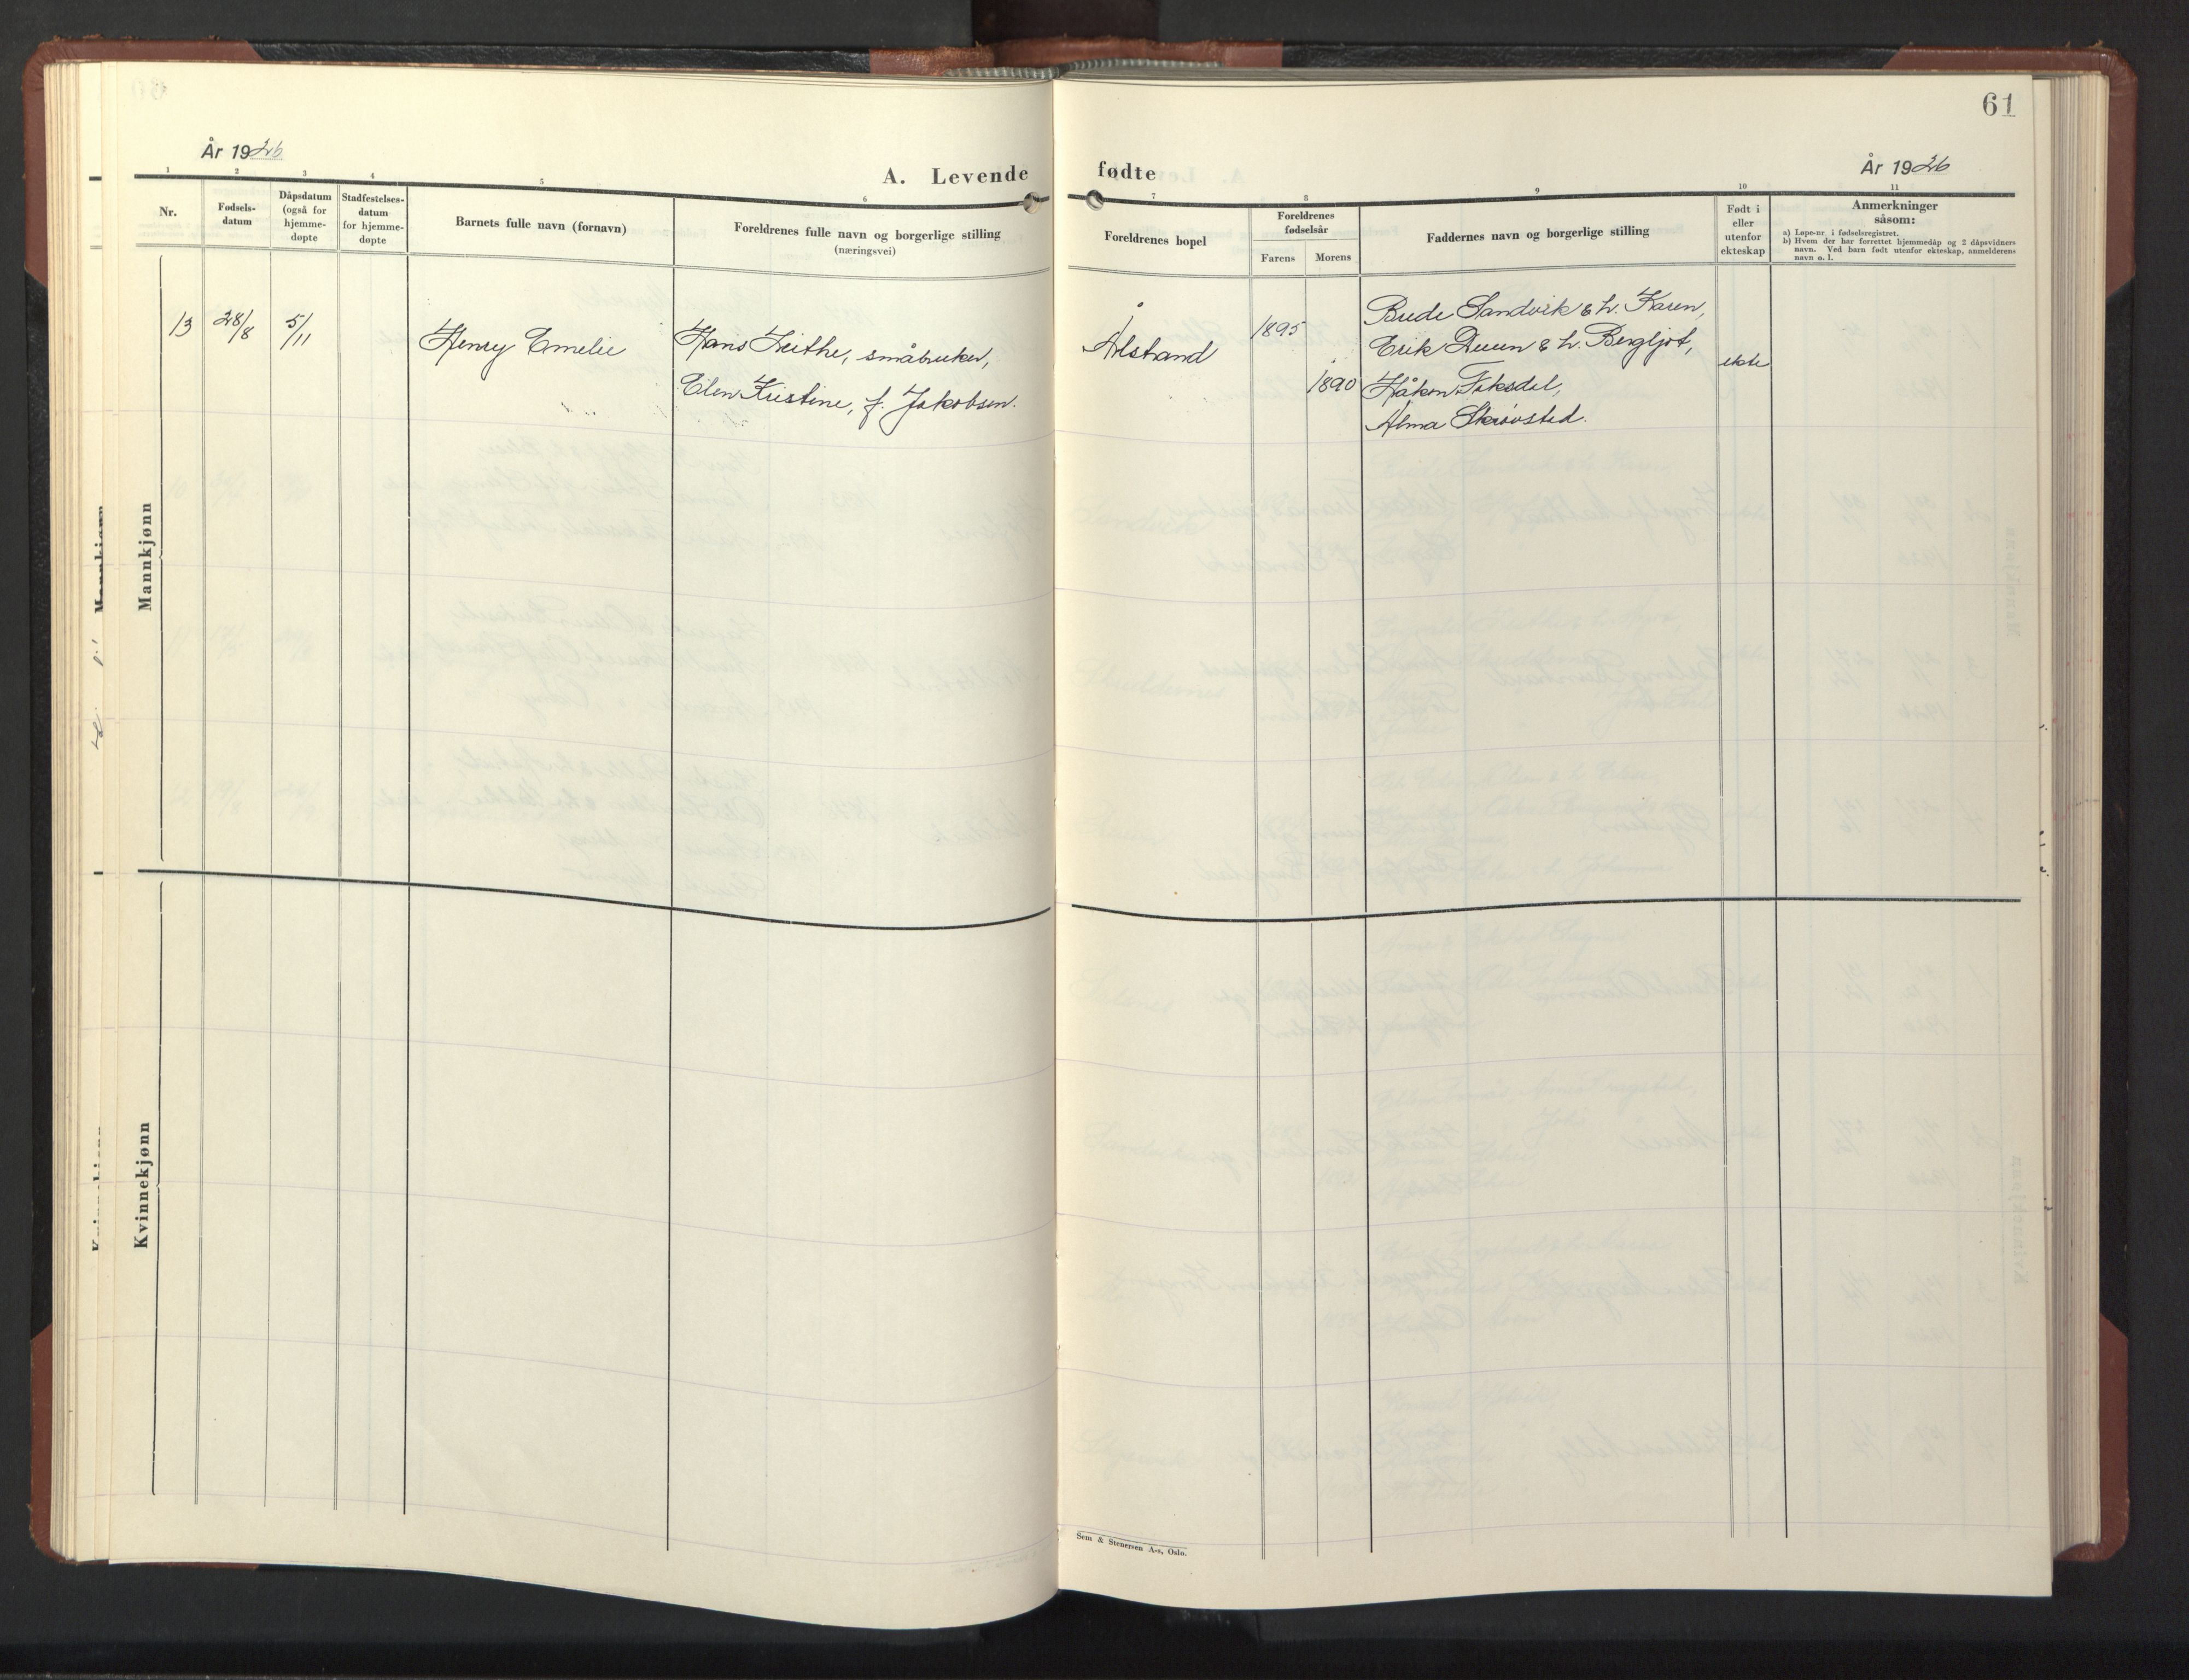 61
År 1926
År 1926
A. Levende fødte
1 2 3 4 5 6 7 8 9 10 11
Nr.
Fødsels-
datum
Dåpsdatum
(også for
hjemme-
døpte
Stadfestelses-
datum
for hjemme-
døpte
Barnets fulle navn (fornavn)
Foreldrenes fulle navn og borgerlige stilling
(næringsvei)
Foreldrenes bopel
Foreldrenes
fødselsår
Farens Morens
Faddernes navn og borgerlige stilling
Født i
eller
utenfor
ekteskap
Anmerkninger
såsom:
a) Løpe-nr. i fødselsregistret.
b) Hvem der har forrettet hjemmedåp og 2 dåpsvidners
navn. Ved barn født utenfor ekteskap, anmelderens
navn o. l.
Mannkjønn
13 28/8 5/11
Henry Emelie
Hans Leithe, småbruker,
Ellen Kristine, f. Jakobsen.
Ålstrand
1895
1890
Brede Sandvik & h. Karen,
Erik Duun & h. Bergljot,
Håkon Faksdal,
Alma Skrøvsted.
ekte
Kvinnekjønn
Sem & Stenersen A-s, Oslo.